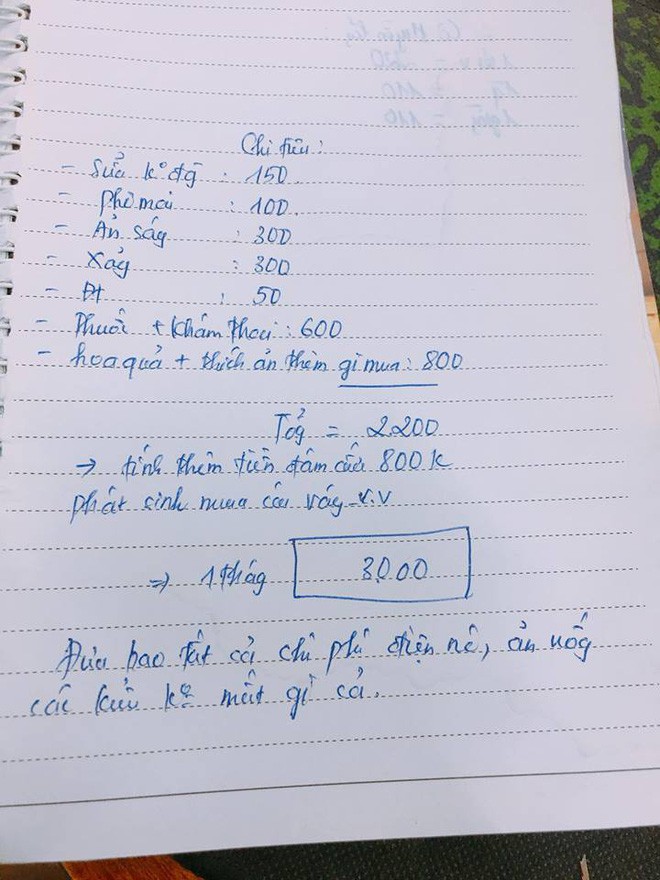 Chi tiêu:
- Sữa k° đg : 150
- phô mai : 100.
- Ăn ság : 300
- Xăg : 300
- Đt : 50
- Thuốc + khám thai : 600
- hoa quả + thích ăn thêm gì mua : 800
Tổg = 2.200
→ tính thêm tiền đám cưới 800k
phát sinh mua cái váy v.v
⇒ 1 thág 3000
Đưa bao tất cả chi phí điện nc, ăn uống
các kiểu k° mất gì cả.